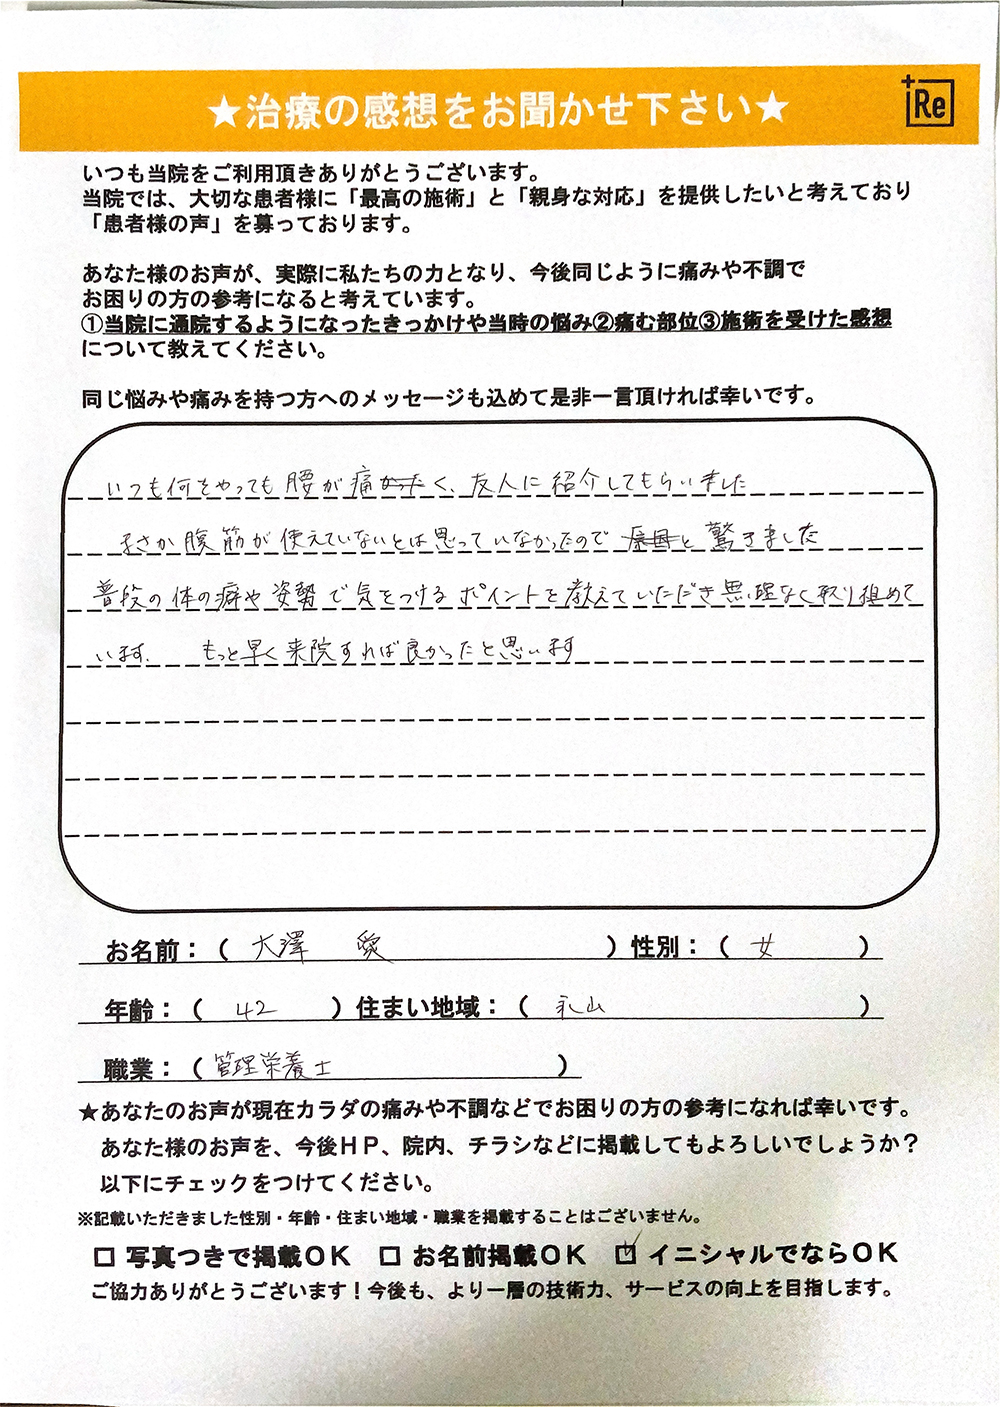 ★治療の感想をお聞かせ下さい★
Re
いつも当院をご利用頂きありがとうございます。
当院では、大切な患者様に「最高の施術」と「親身な対応」を提供したいと考えており
「患者様の声」を募っております。
あなた様のお声が、実際に私たちの力となり、今後同じように痛みや不調で
お困りの方の参考になると考えています。
①当院に通院するようになったきっかけや当時の悩み②痛む部位③施術を受けた感想
について教えてください。
同じ悩みや痛みを持つ方へのメッセージも込めて是非一言頂ければ幸いです。
いつも何をやっても腰が痛く、友人に紹介してもらいました
まさか腹筋が使えていないとは思っていなかったので と驚きました
普段の体の癖や姿勢で気をつけるポイントを教えていただき無理なく取り組めて
います. もっと早く来院すれば良かったと思います
お名前：（ 大澤 愛 ）性別：（ 女 ）
年齢：（ 42 ）住まい地域：（ 永山 ）
職業：（管理栄養士 ）
★あなたのお声が現在カラダの痛みや不調などでお困りの方の参考になれば幸いです。
あなた様のお声を、今後ＨＰ、院内、チラシなどに掲載してもよろしいでしょうか？
以下にチェックをつけてください。
※記載いただきました性別・年齢・住まい地域・職業を掲載することはございません。
□ 写真つきで掲載ＯＫ □ お名前掲載ＯＫ ☑ イニシャルでならＯＫ
ご協力ありがとうございます！今後も、より一層の技術力、サービスの向上を目指します。